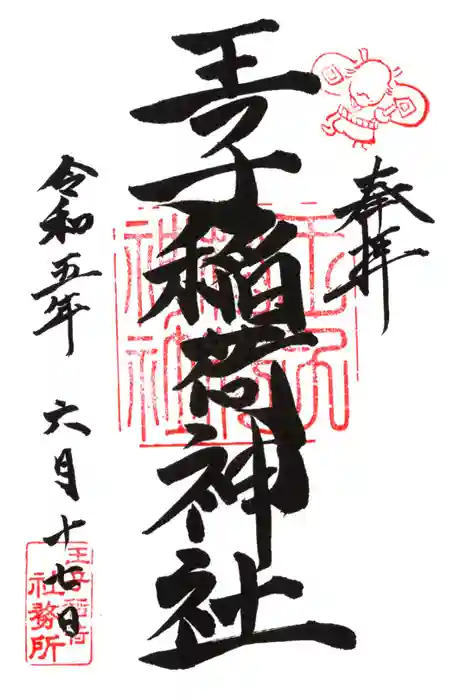 奉拝
王子稲荷神社
令和五年 六月十七日
王子稲荷神社
王子稲荷
社務所